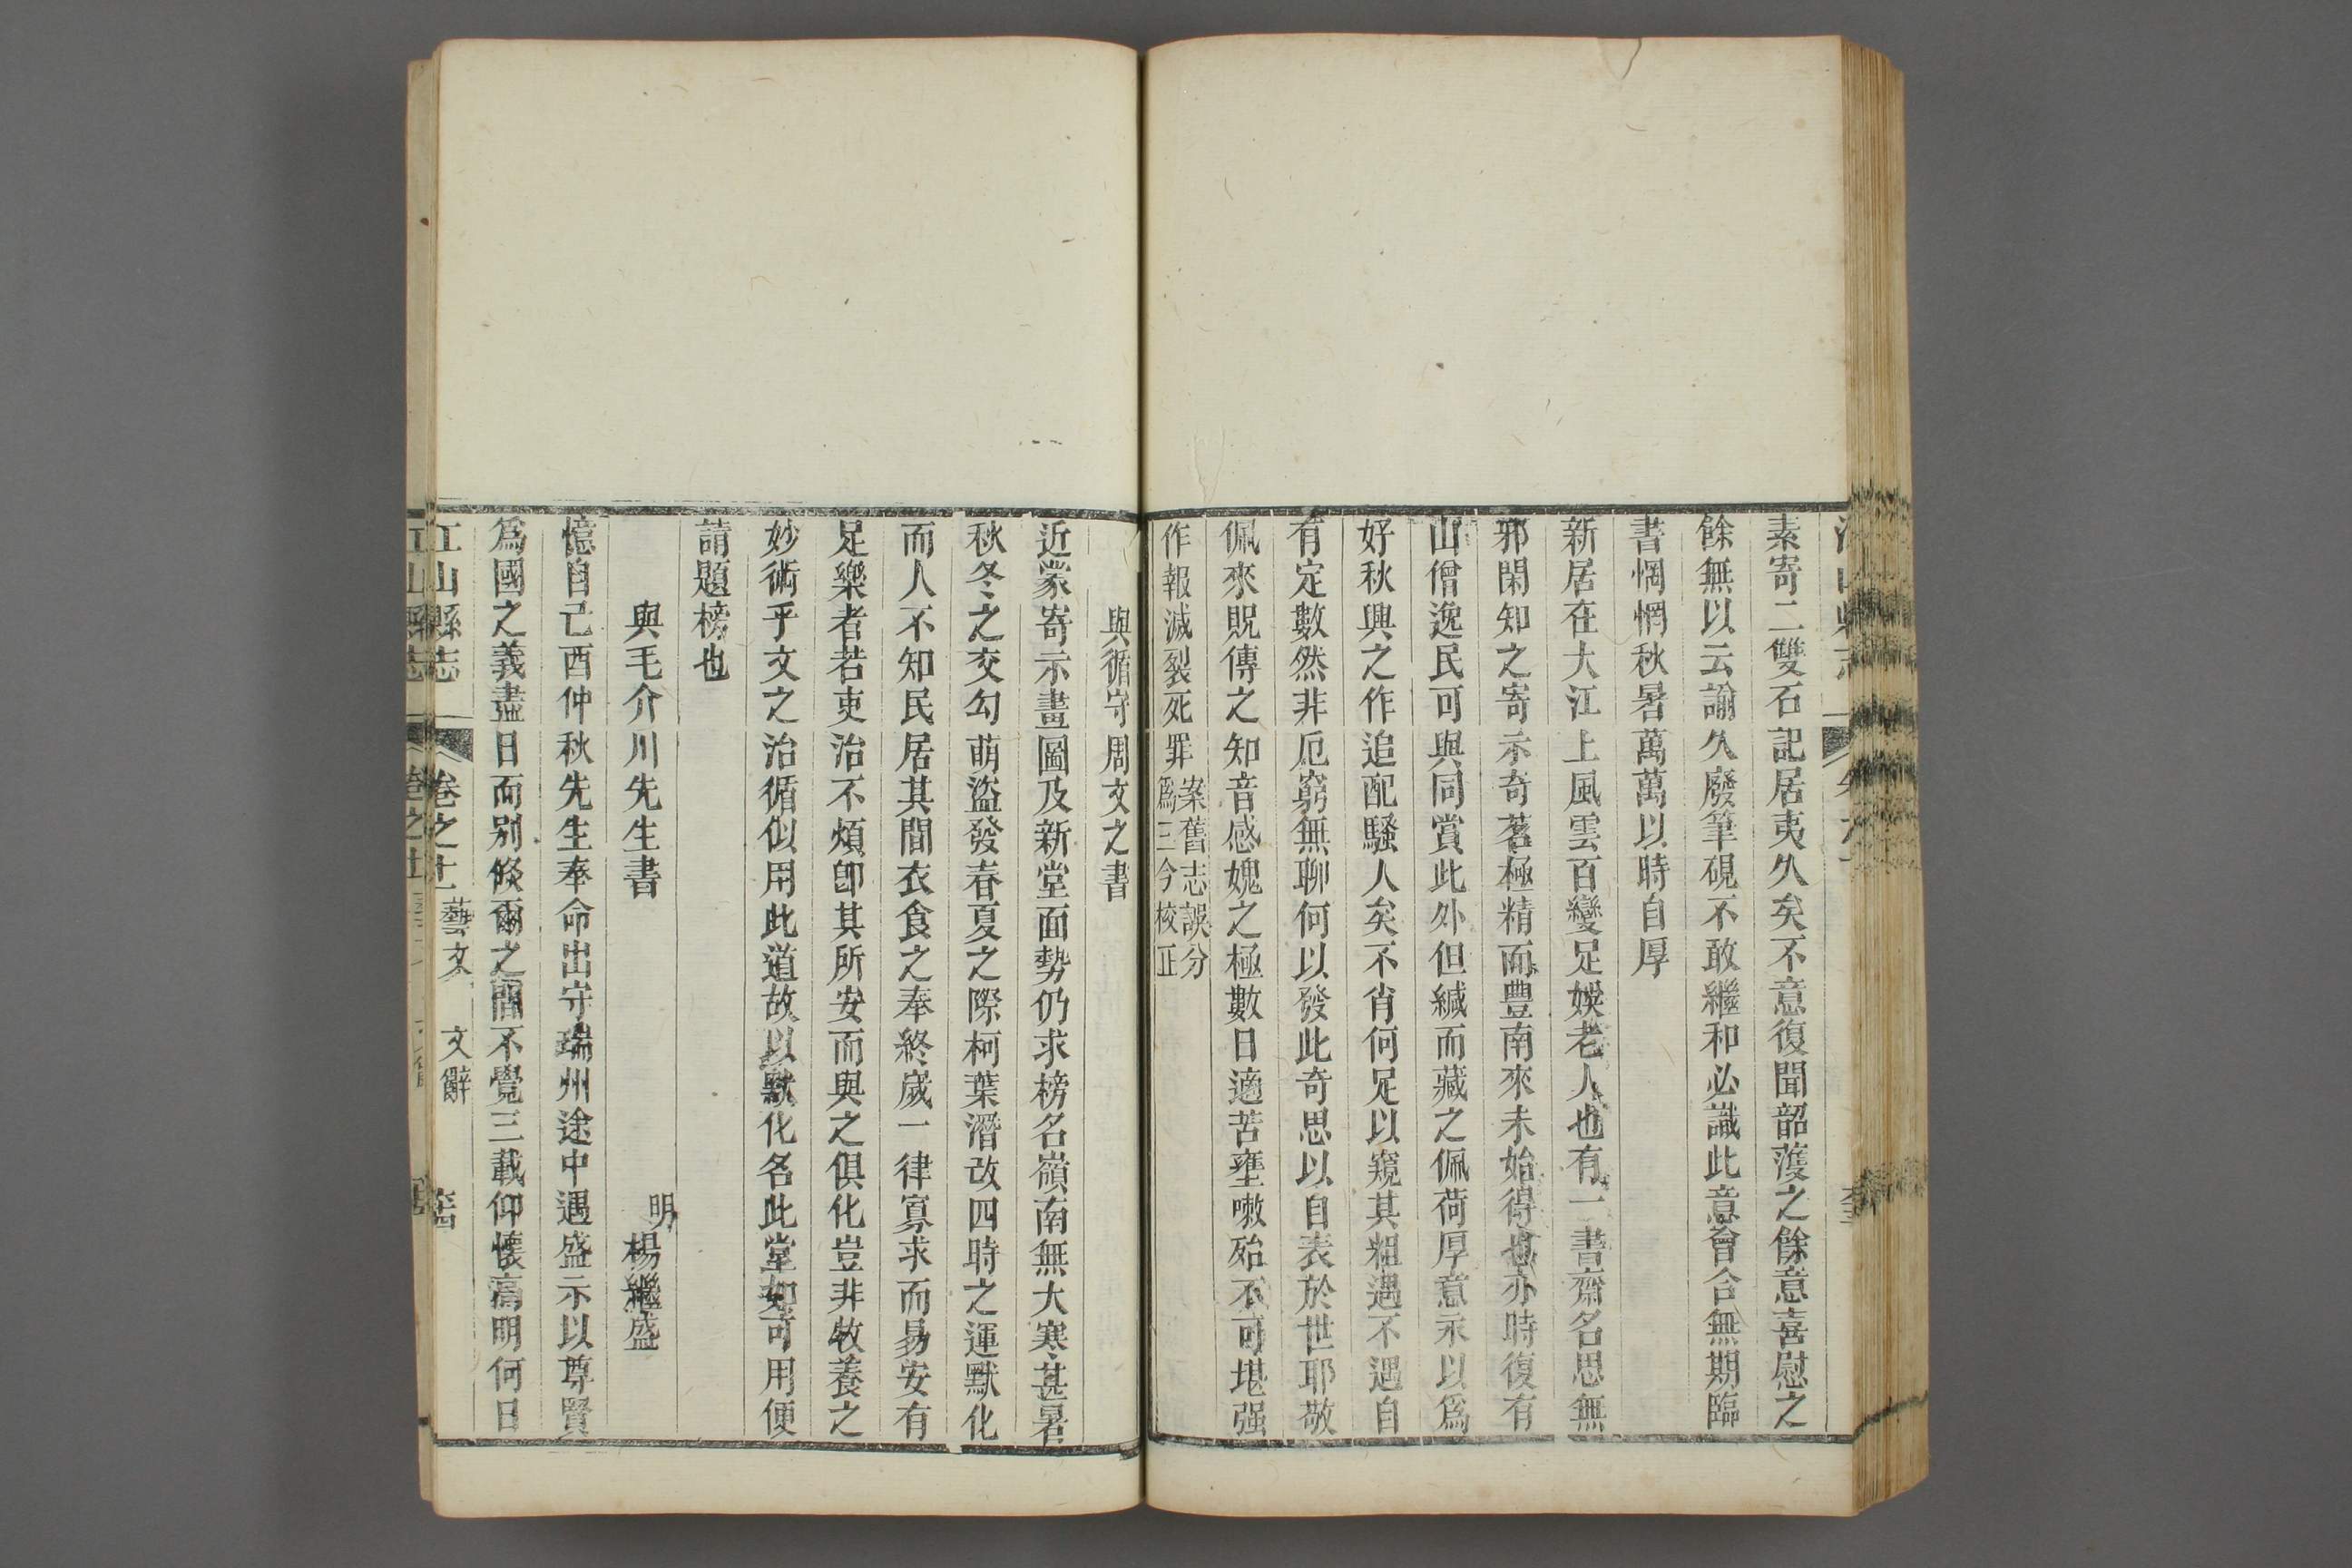 素寄二雙石記居夷久矣不意復聞韶濩之餘意喜慰之
餘無以云諭久廢筆硯不敢繼和必識此意會合無期臨
書惘惘秋暑萬萬以時自厚
新居在大江上風雲百變足娛老人也有一書齋名思無
邪閑知之寄示奇茗極精而豐南來未始得也亦時復有
山僧逸民可與同賞此外但緘而藏之佩荷厚意示以爲
好秋興之作追配騷人矣不肖何足以窺其粗遇不遇自
有定數然非厄窮無聊何以發此奇思以自表於世耶敬
佩來貺傳之知音感媿之極數日適苦壅嗽殆不可堪强
作報滅裂死罪案舊志誤分爲三今校正
與循守周文之書
近蒙寄示畫圖及新堂面勢仍求榜名嶺南無大寒甚暑
秋冬之交勾萌盜發春夏之際柯葉潛改四時之運默化
而人不知民居其間衣食之奉終歲一律寡求而易安有
足樂者若吏治不煩卽其所安而與之俱化豈非牧養之
妙術乎文之治循似用此道故以默化名此堂如可用便
請題榜也
與毛介川先生書
明楊繼盛
憶自己酉仲秋先生奉命出守瑞州途中遇盛示以尊賢
爲國之義盡日而別倐爾之間不覺三載仰懷高明何日
江山縣志
卷之十一藝文 文辭